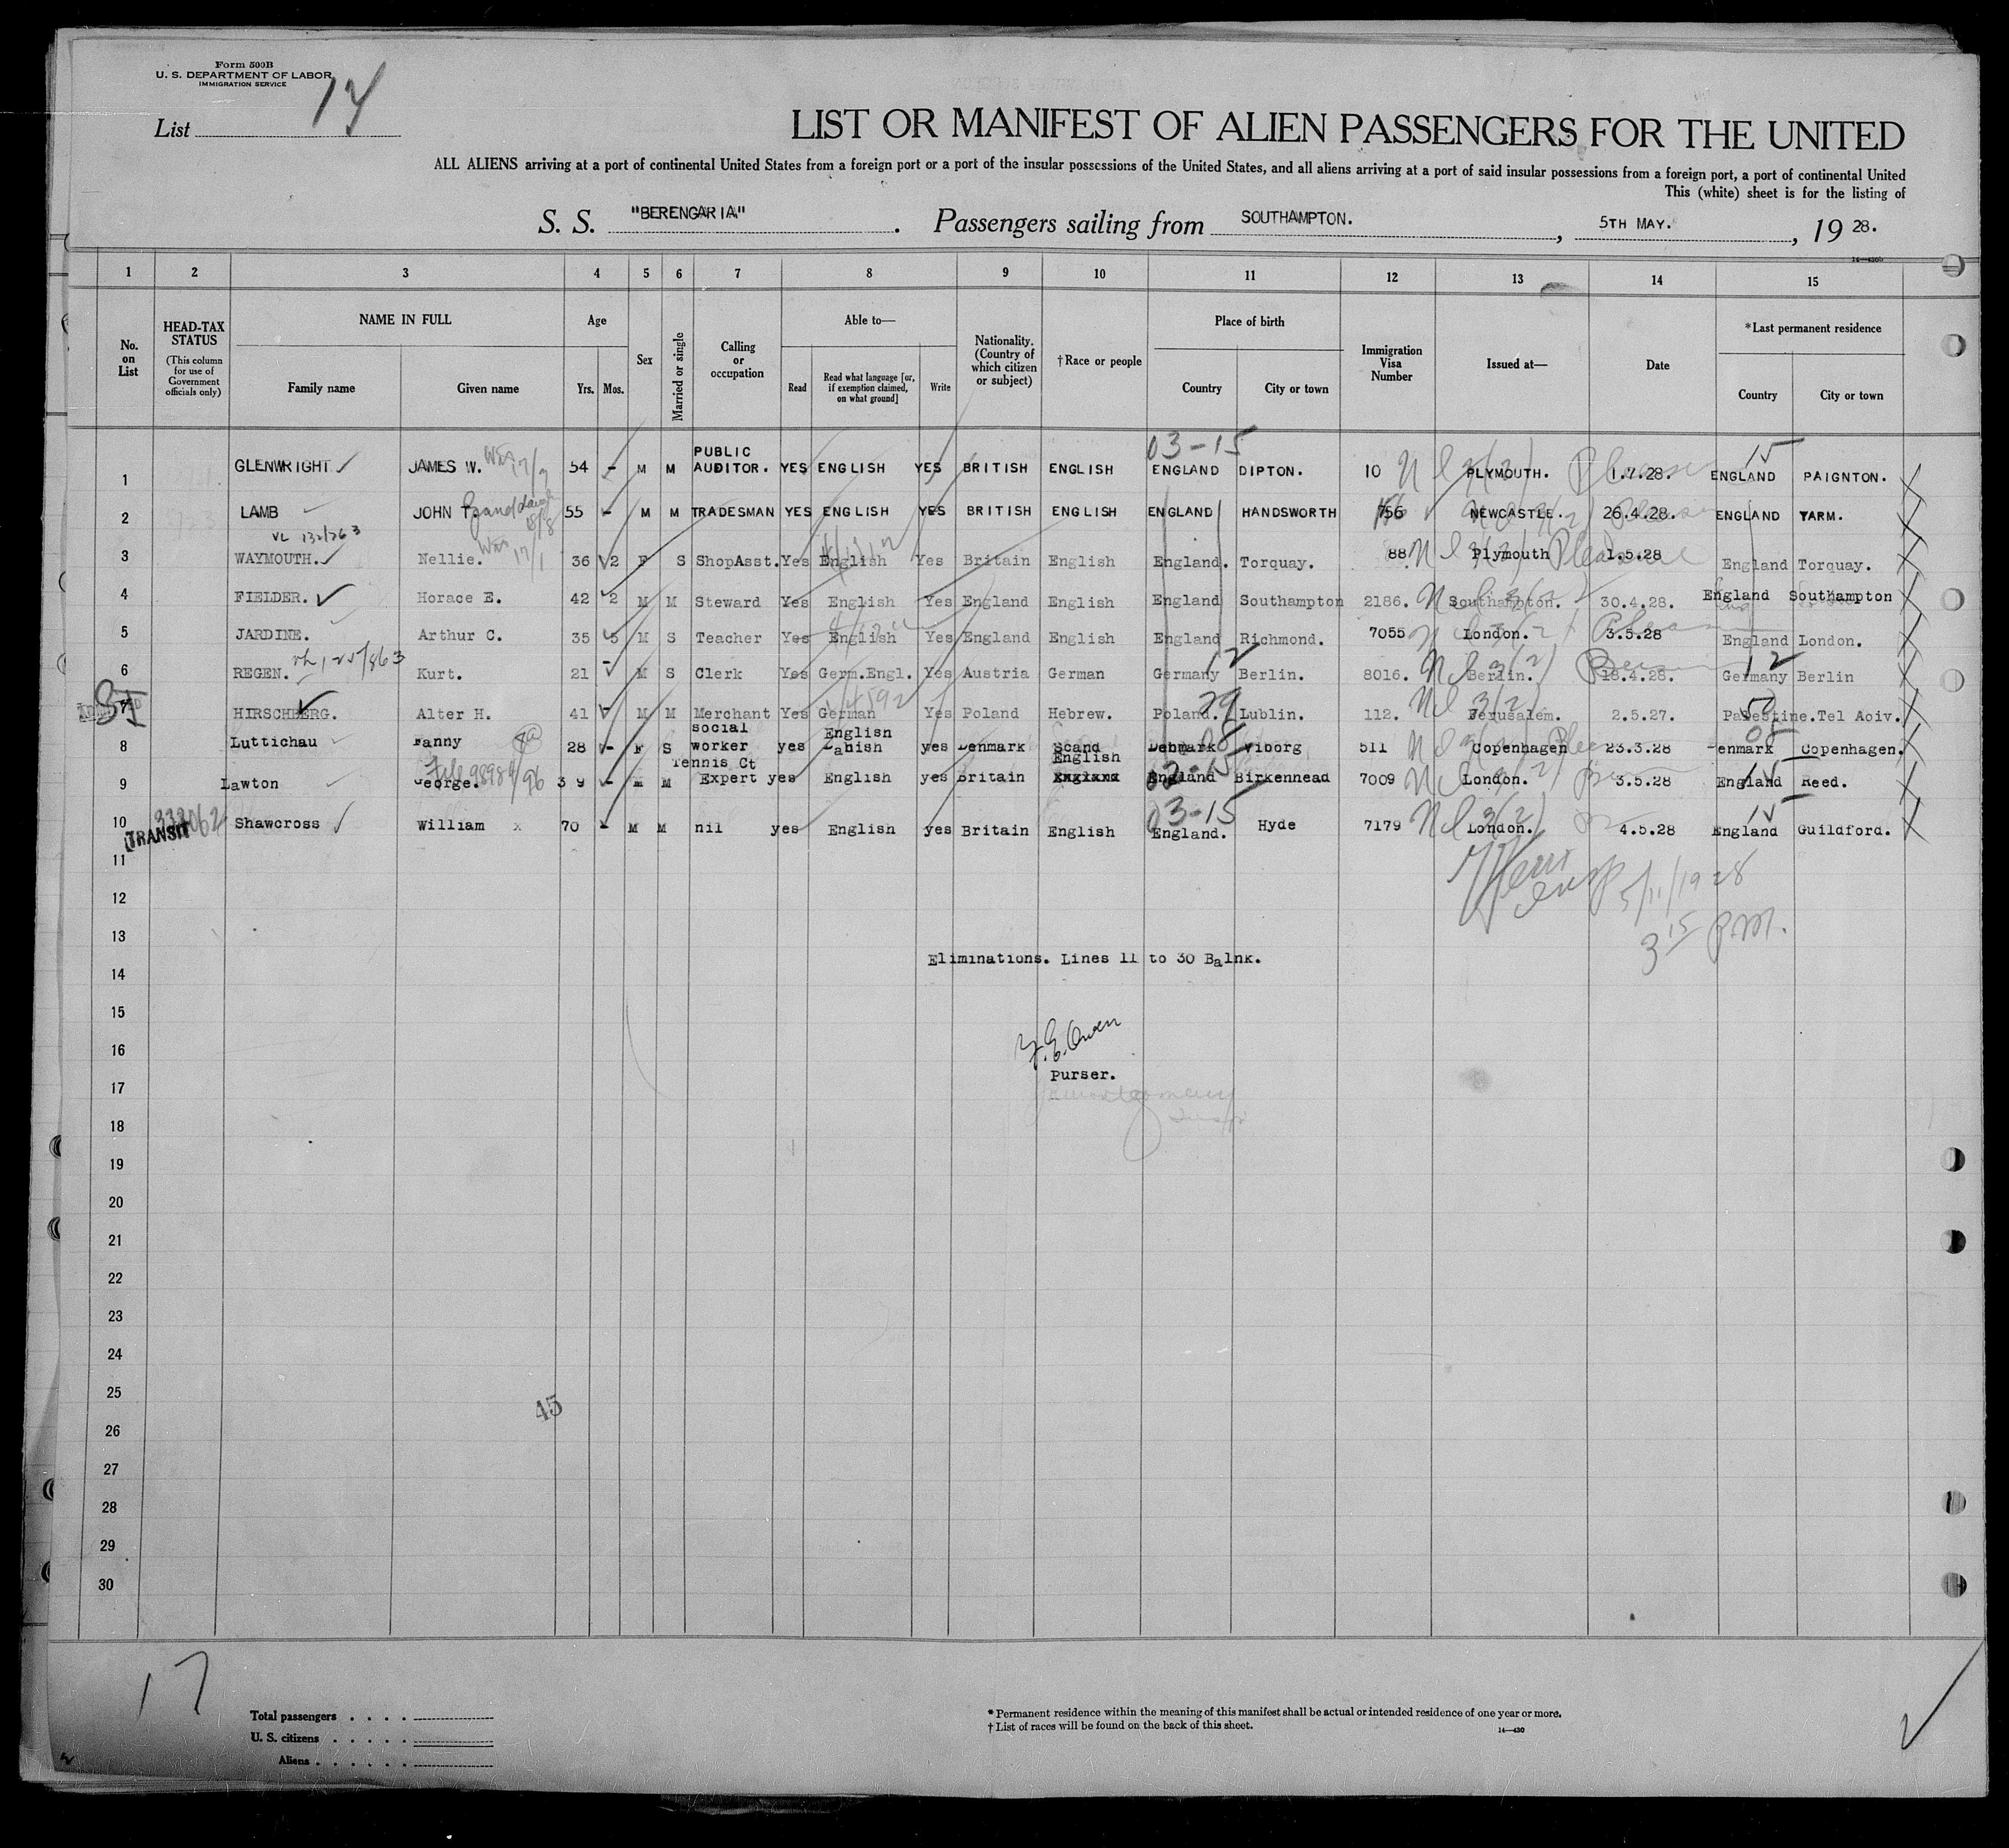 Form 500B
U. S. DEPARTMENT OF LABOR
IMMIGRATION SERVICE
List 14
LIST OR MANIFEST OF ALIEN PASSENGERS FOR THE UNITED
ALL ALIENS arriving at a port of continental United States from a foreign port or a port of the insular possessions of the United States, and all aliens arriving at a port of said insular possessions from a foreign port, a port of continental United
This (white) sheet is for the listing of
S. S. "BERENGARIA". Passengers sailing from SOUTHAMPTON. , 5TH MAY. , 19 28.
1 2 3 4 5 6 7 8 9 10 11 12 13 14 15
No. on List
HEAD-TAX STATUS (This column for use of Government officials only)
NAME IN FULL Family name Given name
Age Yrs. Mos.
Sex
Married or single
Calling or occupation
Able to— Read Read what language [or, if exemption claimed, on what ground] Write
Nationality. (Country of which citizen or subject)
†Race or people
Place of birth Country City or town
Immigration Visa Number
Issued at—
Date
*Last permanent residence Country City or town
03-15 15
1 GLENWRIGHT JAMES W. 54 - M M PUBLIC AUDITOR. YES ENGLISH YES BRITISH ENGLISH ENGLAND DIPTON. 10 PLYMOUTH. 1.7.28. ENGLAND PAIGNTON.
2 LAMB JOHN T. 55 - M M TRADESMAN YES ENGLISH YES BRITISH ENGLISH ENGLAND HANDSWORTH 156 NEWCASTLE. 26.4.28. ENGLAND YARM.
3 WAYMOUTH. Nellie. 36 2 F S ShopAsst. Yes English Yes Britain English England. Torquay. 88. Plymouth 1.5.28 England Torquay.
4 FIELDER. Horace E. 42 2 M M Steward Yes English Yes England English England Southampton 2186. Southampton. 30.4.28. England Southampton
5 JARDINE. Arthur C. 35 5 M S Teacher Yes English Yes England English England Richmond. 7055 London. 3.5.28 England London.
6 REGEN. Kurt. 21 - M S Clerk Yes Germ.Engl. Yes Austria German Germany Berlin. 8016. Berlin. 18.4.28. Germany Berlin
7 HIRSCHBERG. Alter H. 41 M M Merchant Yes German Yes Poland Hebrew. Poland. Lublin. 112. Jerusalem. 2.5.27. Palestine. Tel Aoiv.
8 Luttichau Fanny 28 - F S social worker yes English Danish yes Denmark Scand Denmark Viborg 511 Copenhagen 23.3.28 Denmark Copenhagen.
9 Lawton George. 39 - M M Tennis Ct Expert yes English yes Britain English England England Birkennead 7009 London. 3.5.28 England Reed.
10 TRANSIT Shawcross William x 70 - M M nil yes English yes Britain English 03-15 England. Hyde 7179 London. 4.5.28 England Guildford.
11
12
5/11/1928
13
3 15 P.M.
Eliminations. Lines 11 to 30 Balnk.
14
15
16
Purser.
17
18
19
20
21
22
23
24
25
45
26
27
28
29
30
17
Total passengers
U. S. citizens
Aliens
* Permanent residence within the meaning of this manifest shall be actual or intended residence of one year or more.
† List of races will be found on the back of this sheet.
14—430